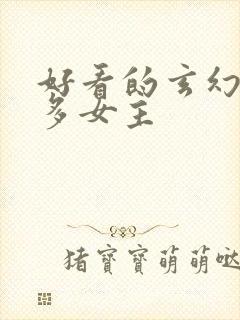 好看的玄幻
多女主
猪寶寶萌萌哒